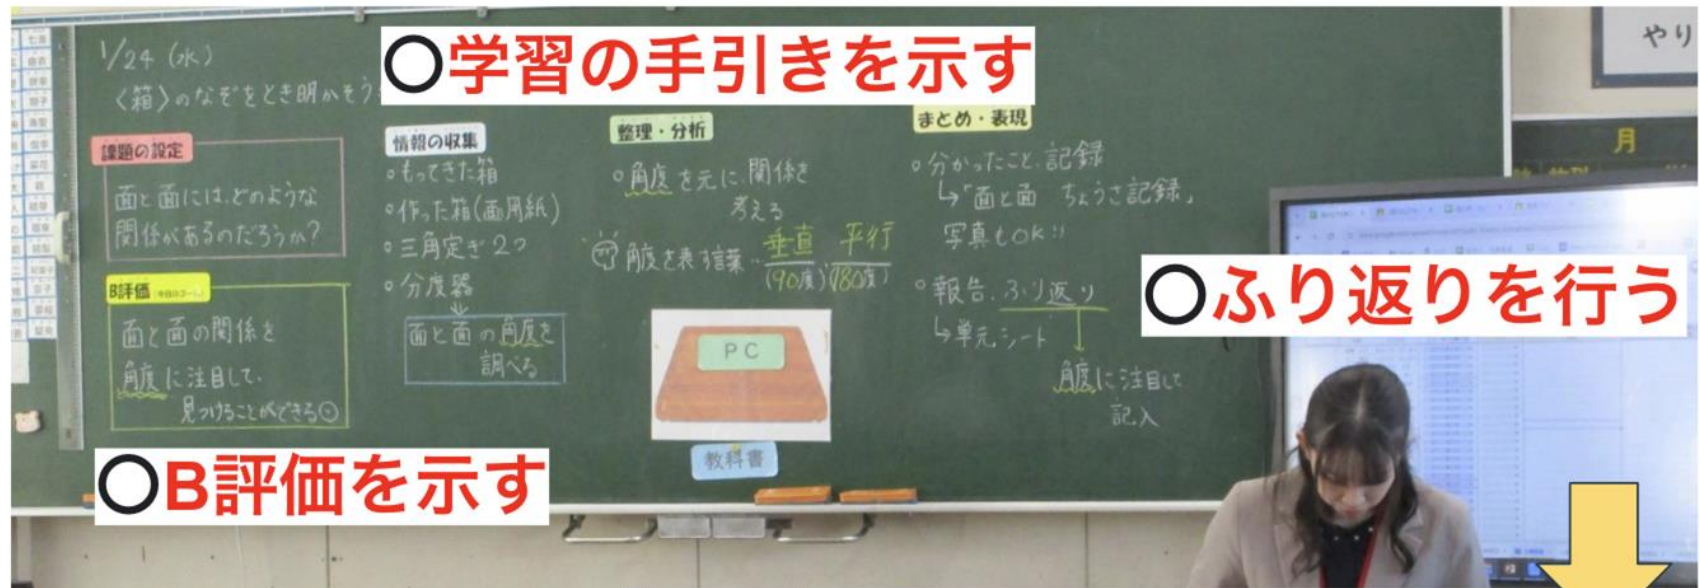 1/24(水)
〈箱〉のなぞをとき明かそう
〇学習の手引きを示す
課題の設定
面と面には、どのような
関係があるのだろうか?
B評価
面と面の関係を
角度に注目して、
見つけることができる
〇B評価を示す
情報の収集
○もってきた箱
○作った箱(画用紙)
○三角定ぎ2つ
○分度器
面と面の角度を
調べる
整理・分析
○角度を元に、関係を
考える
角度を表す言葉…垂直 平行
(90度)、(180度)
PC
教科書
まとめ・表現
○分かったこと、記録
↳「面と面 ちょうさ記録」
写真もOK!!
○報告、ふり返り
↳単元シート
角度に注目して
記入
〇ふり返りを行う
やり
月